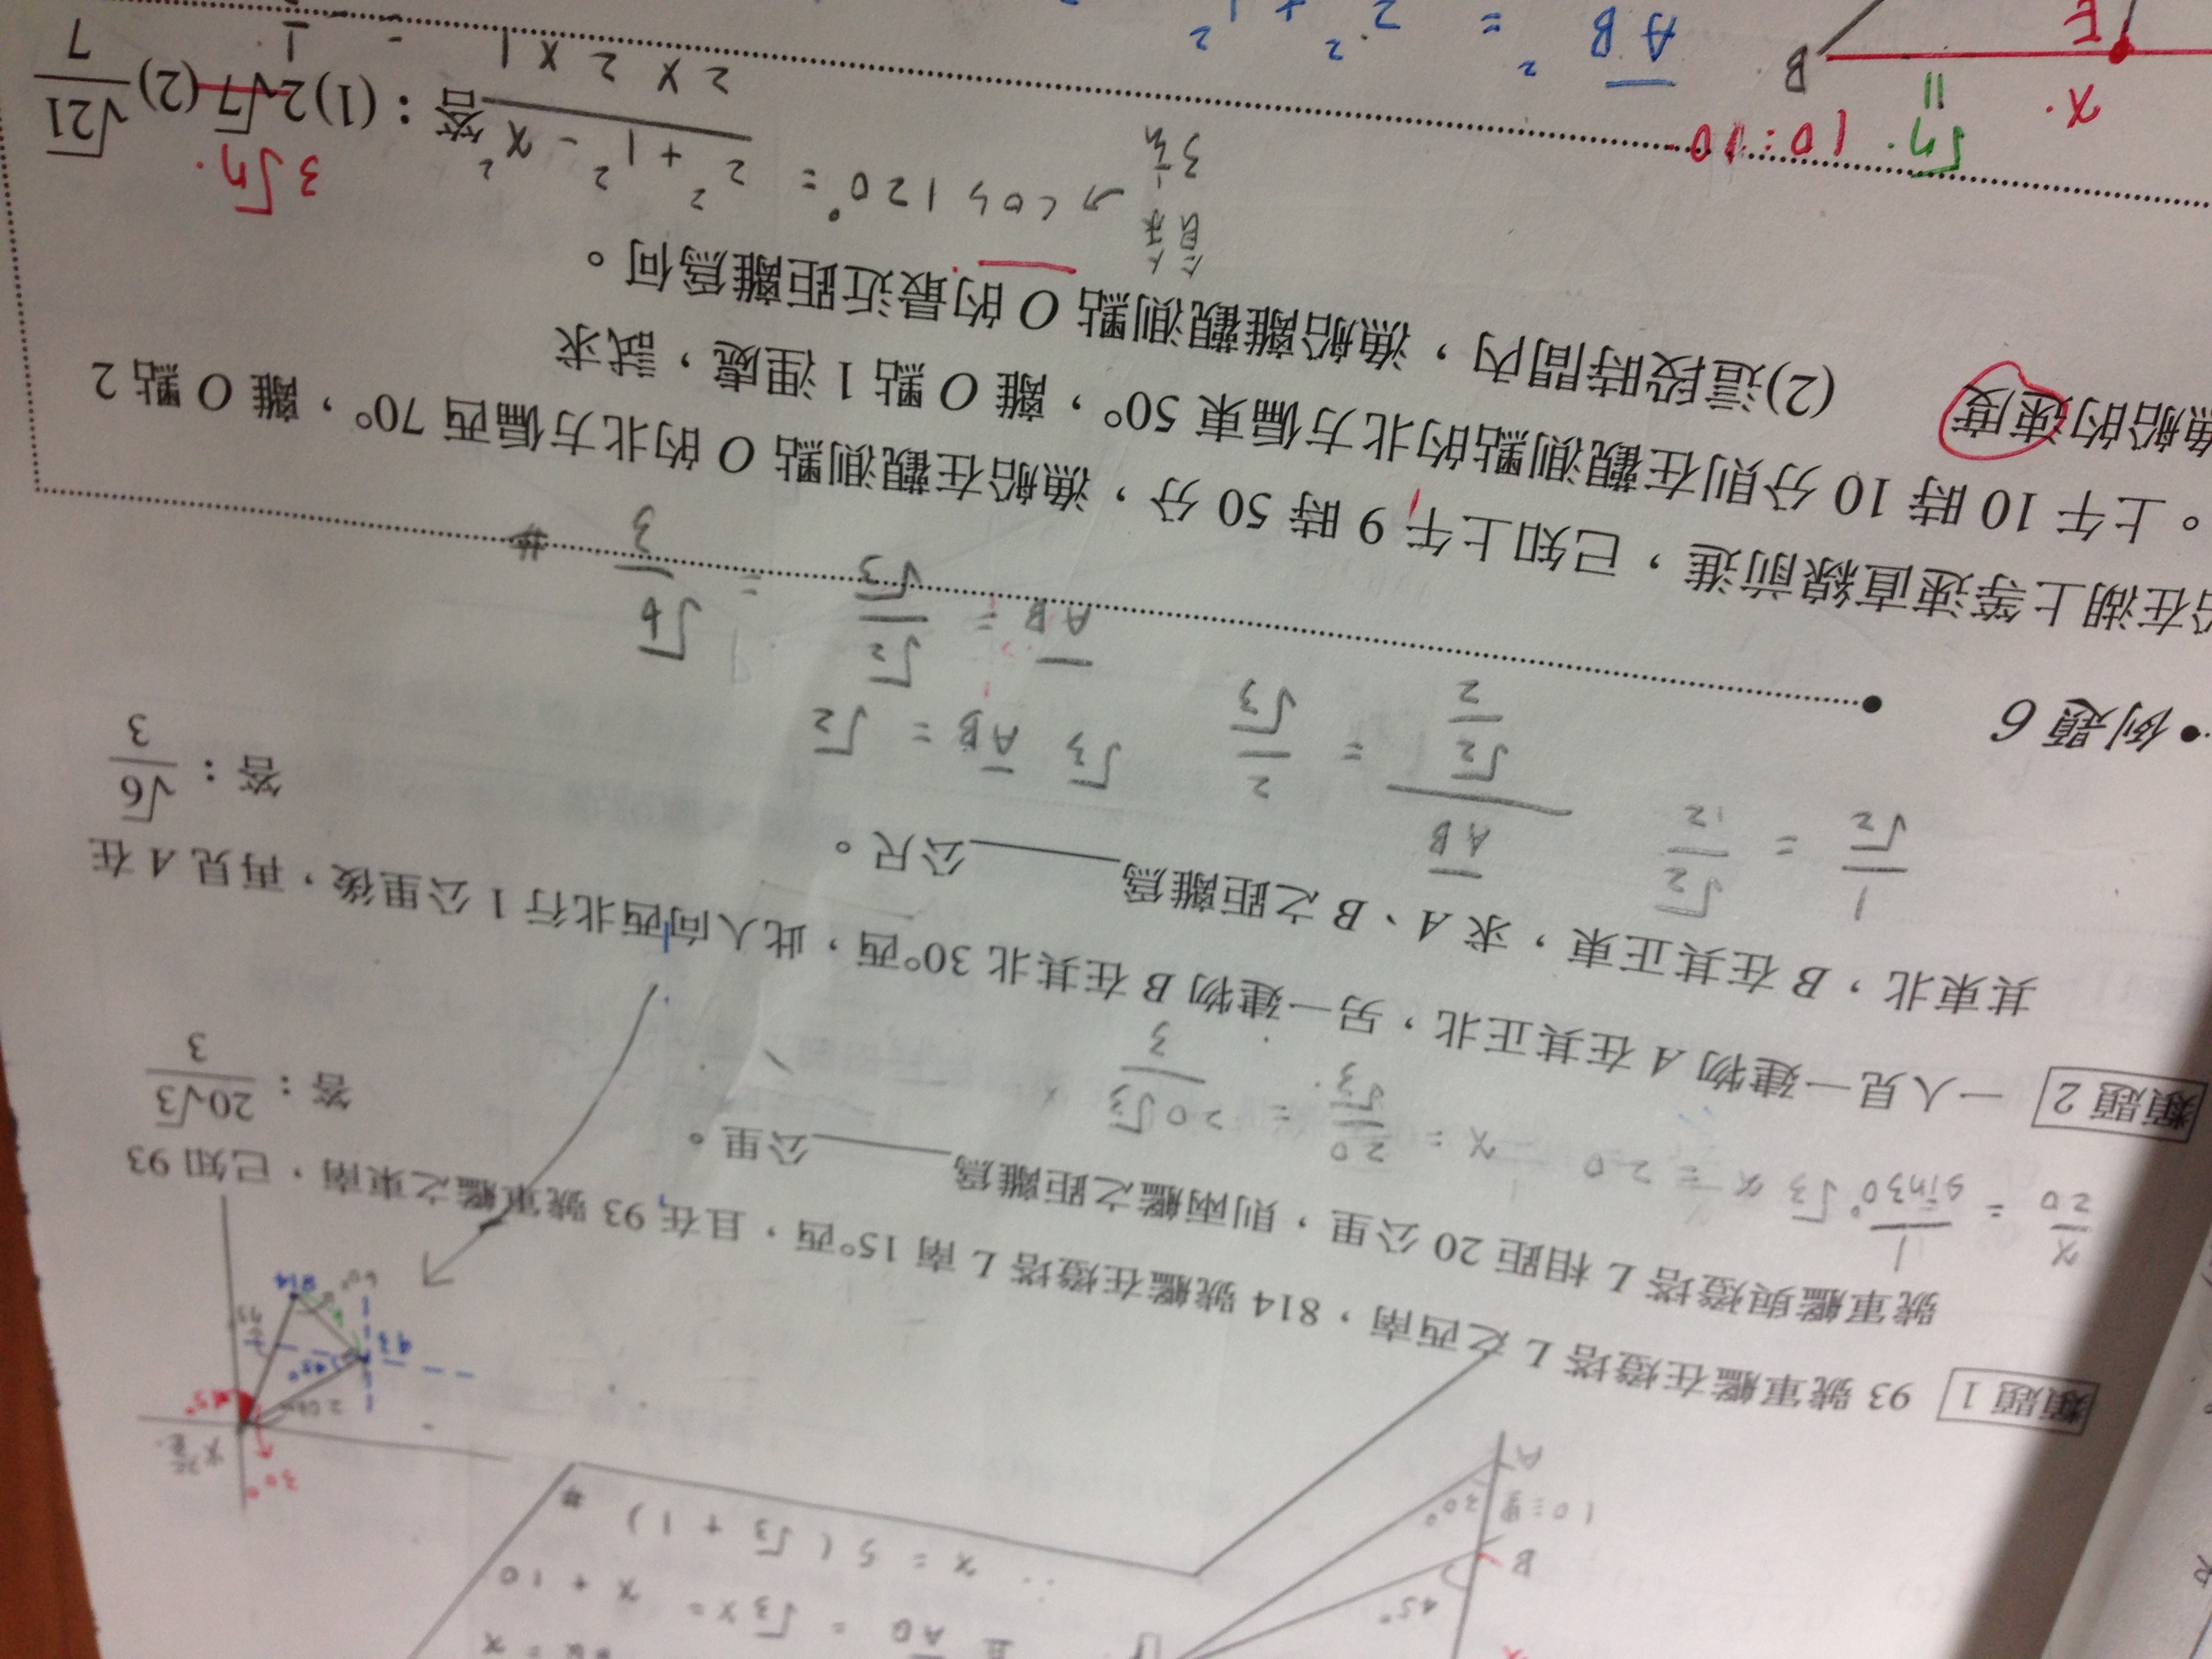 BQ = x
且 AQ = √3x = x + 10
∴ x = 5(√3 + 1) #
B
45°
10浬
30°
A
類題 1 93 號軍艦在燈塔 L 之西南，814 號艦在燈塔 L 南 15°西，且在 93 號軍艦之東南，已知 93
號軍艦與燈塔 L 相距 20 公里，則兩艦之距離為______公里。
答：20√3/3
30°
45°
20km
45°
93
60°
814
x/20 = 1/sin30° √3 x = 20 x = 20/√3 = 20√3/3
類題 2 一人見一建物 A 在其正北，另一建物 B 在其北 30°西，此人向西北行 1 公里後，再見 A 在
其東北，B 在其正東，求 A、B 之距離為______公尺。
答：√6/3
1/√2 = √2/2
AB/(√2/2) = 2/√3 √3 AB = √2
AB = √2/√3 = √6/3 #
例題 6
在湖上等速直線前進，已知上午 9 時 50 分，漁船在觀測點 O 的北方偏西 70°，離 O 點 2
。上午 10 時 10 分則在觀測點的北方偏東 50°，離 O 點 1 浬處，試求
漁船的速度 (2)這段時間內，漁船離觀測點 O 的最近距離為何。
答：(1)2√7 (2)√21/7
3√7.
→ cos 120° = (2² + 1² - x²)/(2 × 2 × 1)
x.
√7.
10:10.
E
B
AB² = 2² + 1²